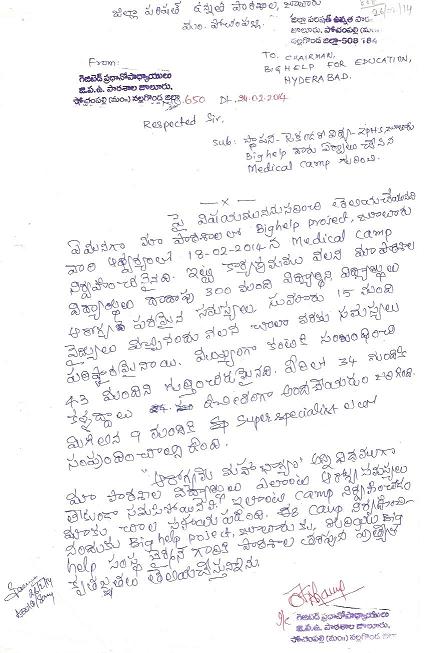 జిల్లా పరిషత్ ఉన్నత పాఠశాల, జలాలపురం
మం. పోచంపల్లి
జిల్లా పరిషత్ ఉన్నత పాఠ
జాలూరు, పోచంపల్లి (మం)
నల్లగొండ జిల్లా-508 284
From:
గెజిటెడ్ ప్రధానోపాధ్యాయులు
జి.ప.ఉ. పాఠశాల జాలూరు,
పోచంపల్లి (మం) నల్లగొండ జిల్లా
650 Dt. 24-02-2014
TO. CHAIRMAN,
BIGHELP FOR EDUCATION,
HYDERABAD.
Respected Sir,
Sub: పాఠశాల - ZPHS, జాలూరు
Bighelp వారు ఏర్పాటు చేసిన
Medical Camp గురించి.
—x—
పై విషయముననుసరించి తెలియచేయునది
ఏమనగా మా పాఠశాలలో Bighelp project, జాలూరు
వారి ఆధ్వర్యంలో 13-02-2014న Medical Camp
నిర్వహించనైనది. ఇట్టి కార్యక్రమము వలన మా పాఠశాల
విద్యార్థులు దాదాపు 300 మంది విద్యార్థినీ విద్యార్థులు
ఆరోగ్య పరమైన సమస్యలు సుమారు 15 మంది
వైద్యులు వలన చాలా వరకు సమస్యలు
పరిష్కారమైనాయి. ముఖ్యంగా కంటికి సంబంధించి
43 మందిని గుర్తించనైనది. వీరిలో 34 మందికి
కళ్ళద్దాలు ఉచితంగా అందచేయడం జరిగింది.
మిగిలిన 9 మందికి Super specialist లలో
సంప్రదించాల్సి ఉంది.
"ఆరోగ్యమే మహాభాగ్యం" అన్న విధంగా
మా పాఠశాల విద్యార్థులు ఎలాంటి ఆరోగ్య సమస్యలు
లేకుండా ఇలాంటి Camp నిర్వహించడం
మాకు చాలా ఈ Camp నిర్వహించి
నందుకు Bighelp project, జాలూరుకు, మరియు Big
help సంస్థ చైర్మన్ గారికి పాఠశాల తరపున
కృతజ్ఞతలు తెలియచేస్తున్నాము.
గెజిటెడ్ ప్రధానోపాధ్యాయులు
జి.ప.ఉ. పాఠశాల జాలూరు,
పోచంపల్లి (మం) నల్లగొండ